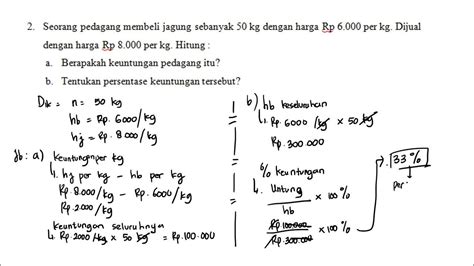 2. Seorang pedagang membeli jagung sebanyak 50 kg dengan harga Rp 6.000 per kg. Dijual
dengan harga Rp 8.000 per kg. Hitung :
a. Berapakah keuntungan pedagang itu?
b. Tentukan persentase keuntungan tersebut?
Dik = n = 50 kg
hb = Rp. 6000/kg
hj = Rp. 8000/kg
Jb: a) keuntungan per kg
hj per kg - hb per kg
Rp. 8.000/kg - Rp. 6000/kg
Rp. 2.000/kg
keuntungan seluruhnya
Rp. 2000/kg × 50 kg = Rp. 100.000
b) hb keseluruhan
Rp. 6000/kg × 50 kg
Rp. 300.000
% keuntungan
Untung / hb × 100 %
Rp 100.000 / Rp. 300.000 × 100 %
33 %